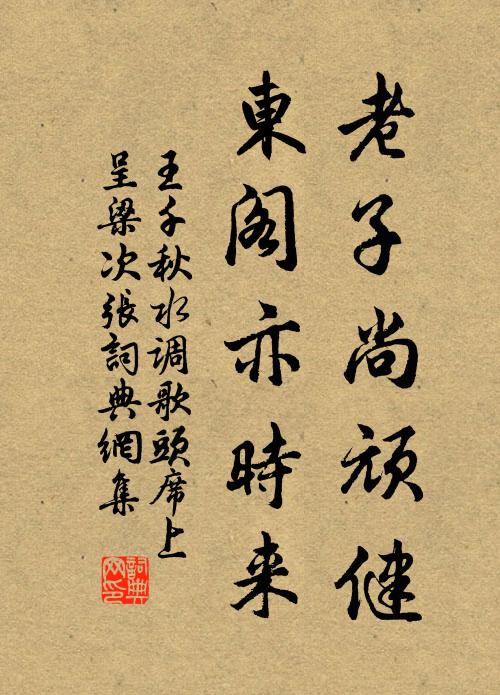 老子尚頑健
東阁亦時来
王千秋水调歌頭席上
呈梁次張詞典網集
詞典网印